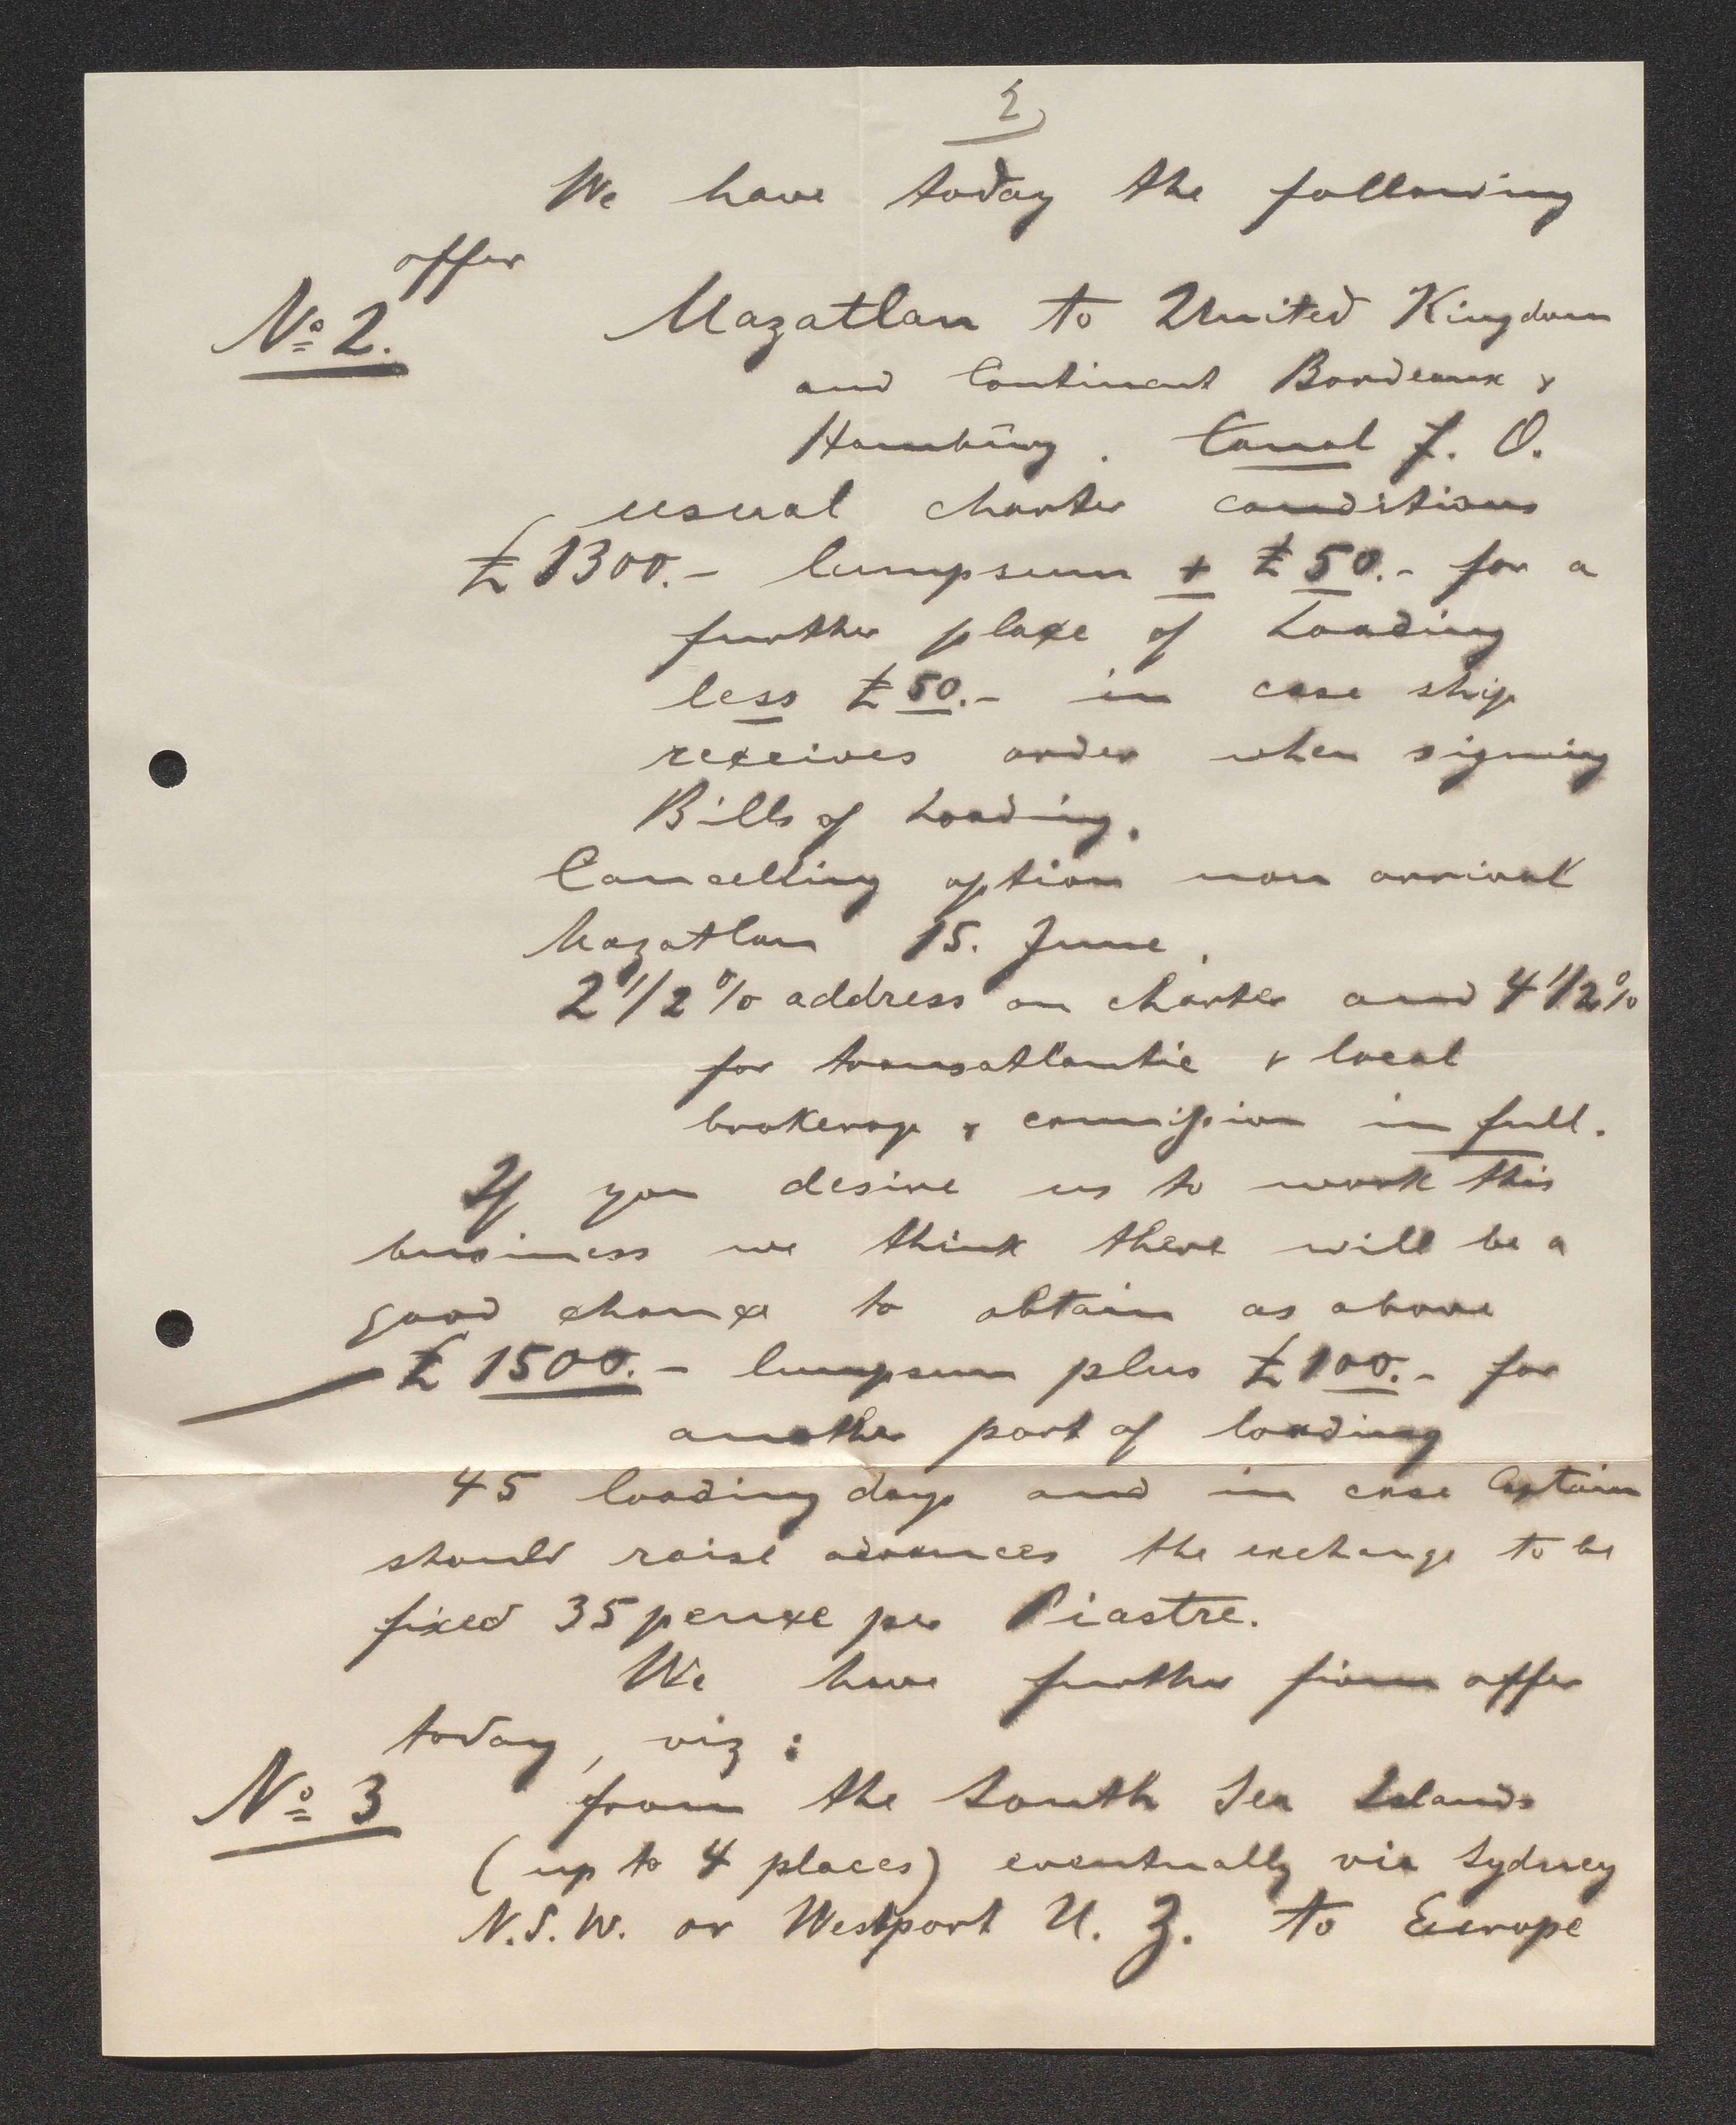 2)
We have today the following
offer
No 2. Mazatlan to United Kingdom
and Continent Bordeaux &
Hamburg. Canal f. O.
usual charter conditions
£ 1300.- lumpsum + £ 50.- for a
further place of Loading
less £ 50.- in case ship
receives order when signing
Bills of Loading.
Cancelling option non arrival
Mazatlan 15. June.
2 1/2 % address on charter and 4 1/2 %
for transatlantic & local
brokerage & commission in full.
If you desire us to work this
business we think there will be a
good chance to obtain as above
£ 1500.- lumpsum plus £ 100.- for
another port of loading
45 loading days and in case Captain
should raise advances the exchange to be
fixed 35 pence per Piastre.
We have further firm offer
today, viz:
No 3 from the South Sea Islands
(up to 4 places) eventually via Sydney
N.S.W. or Westport N. Z. to Europe